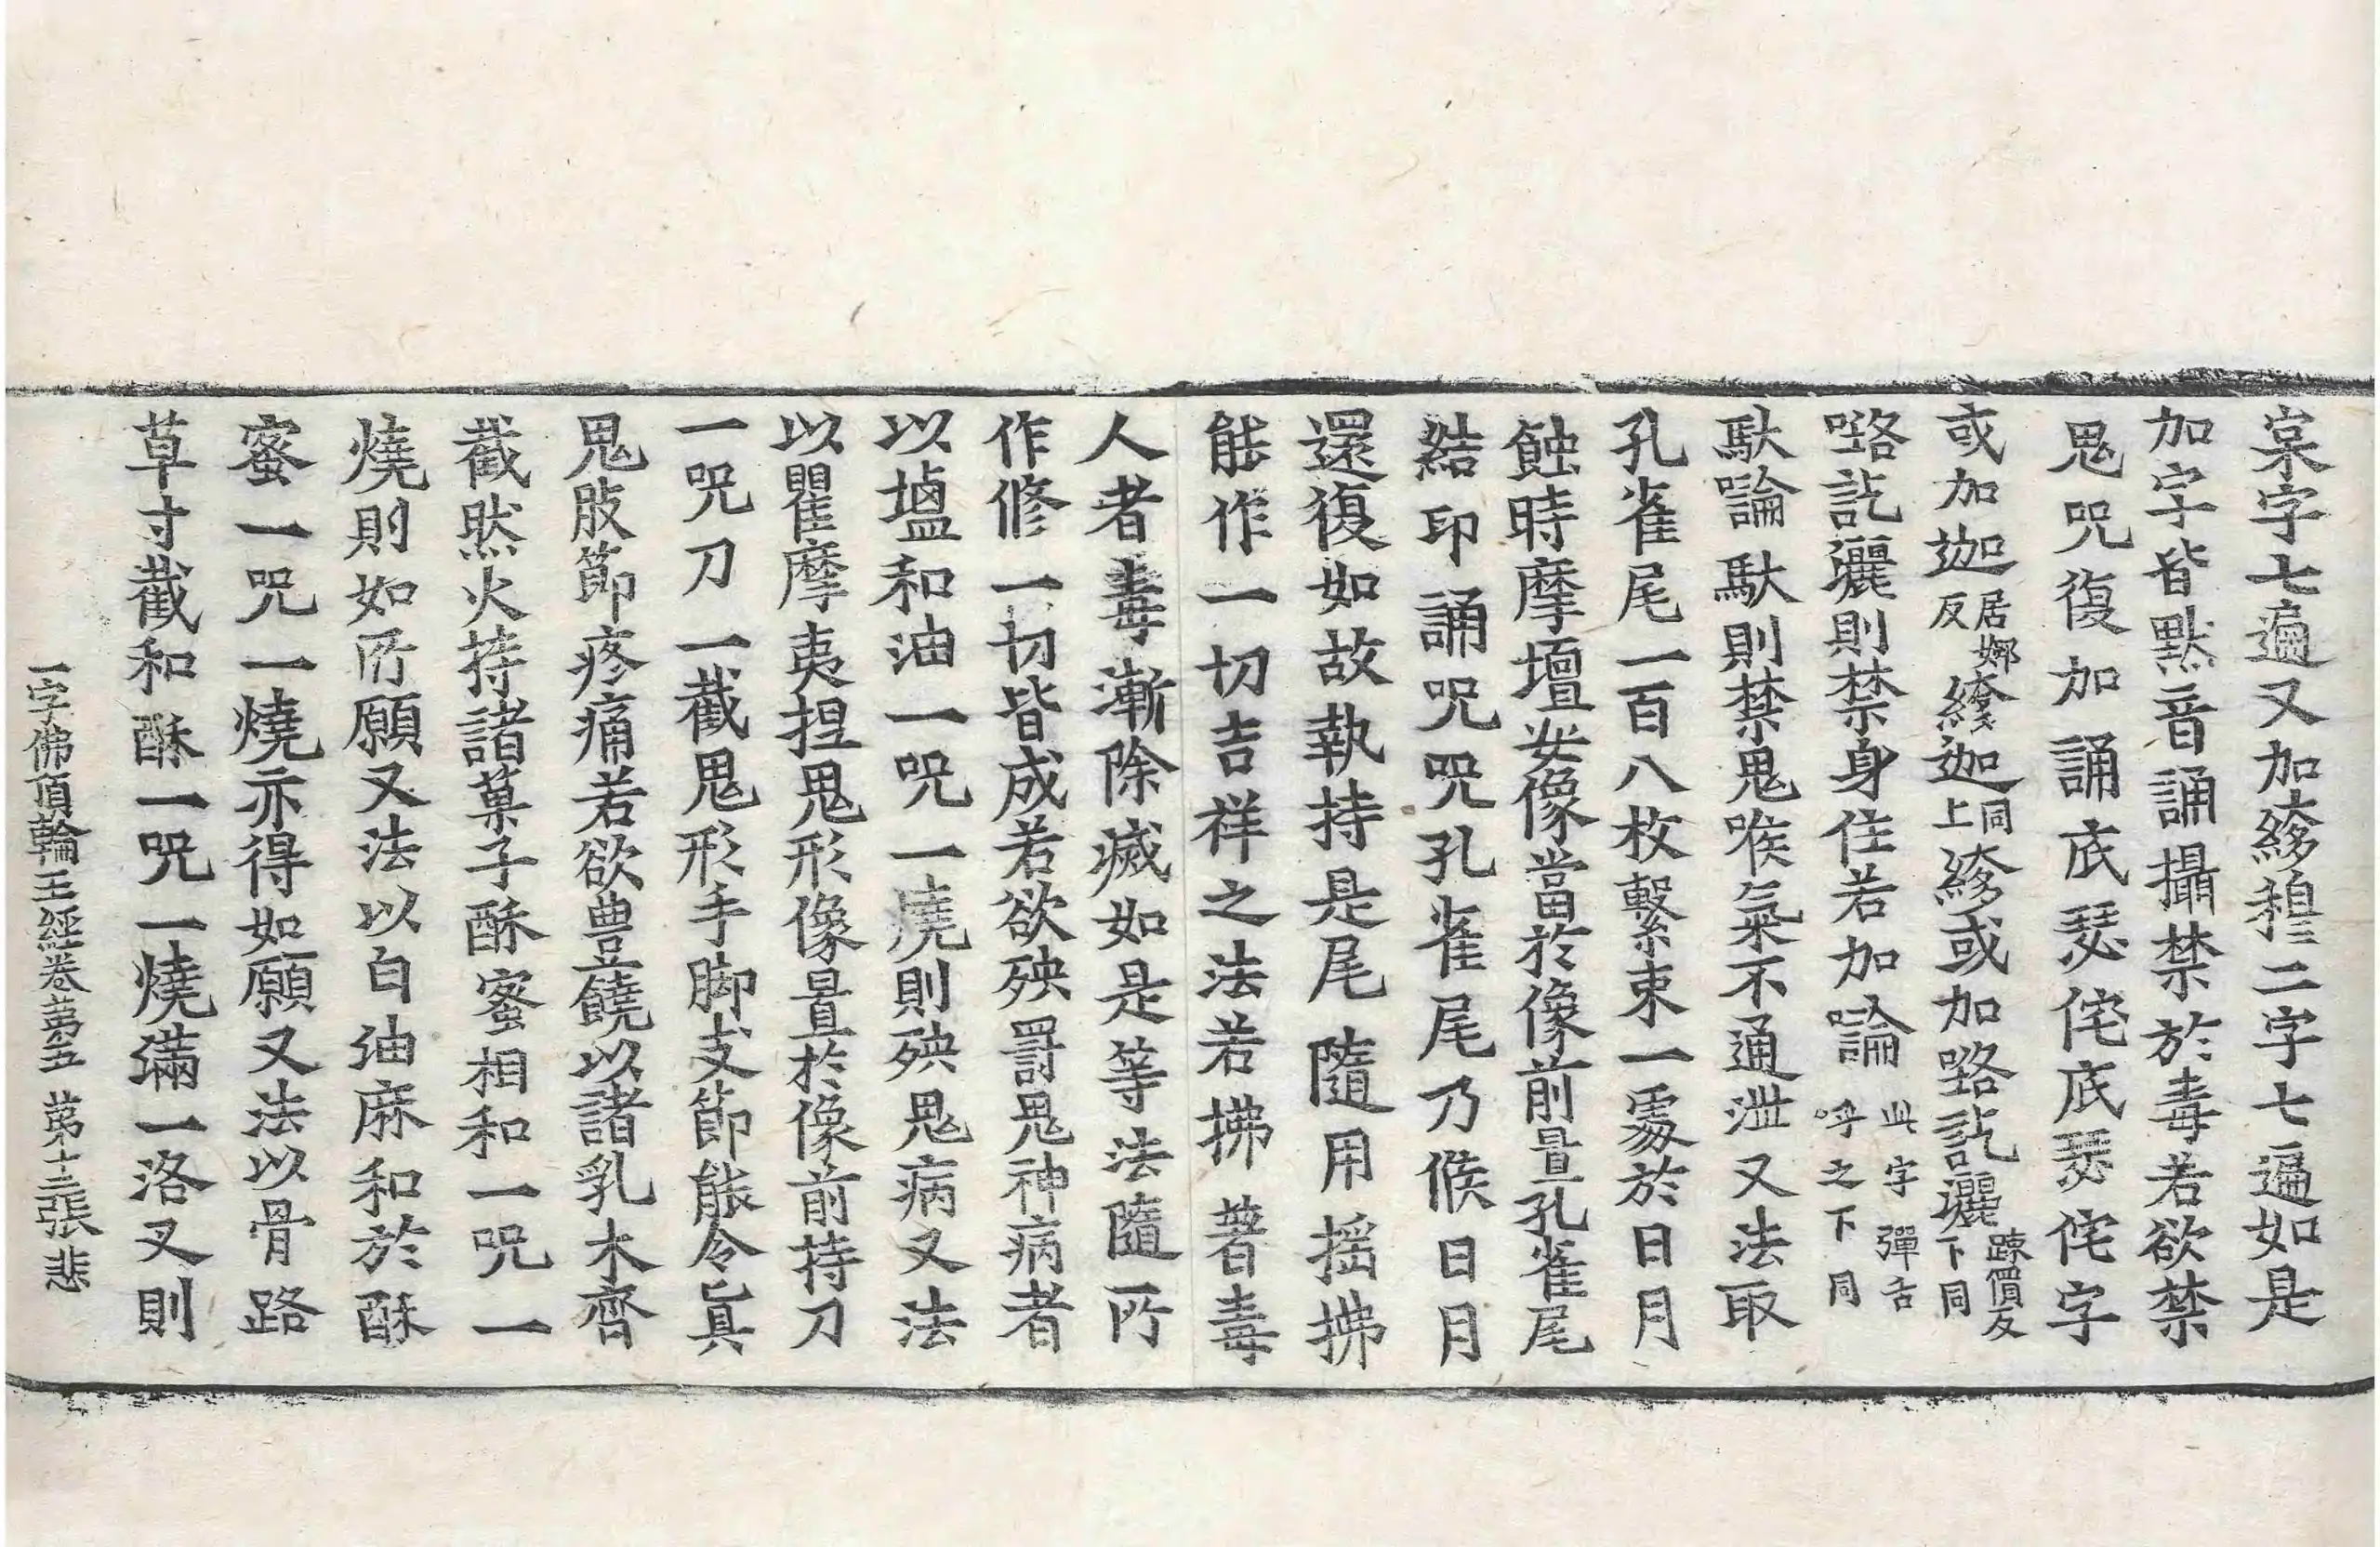 字七遍又加緣穆三二字七遍如是
加字皆默音誦攝禁於毒若欲禁
鬼咒復加誦底瑟侘底瑟侘字
或加迦居娜反緣迦同上緣或加㗉訖灑踈價反下同
㗉訖灑則禁身住若加論此字彈舌呼之下同
䭾論䭾則禁鬼喉氣不通泄又法取
孔雀尾一百八枚繫束一處於日月
蝕時摩壇安像當於像前置孔雀尾
結印誦咒咒孔雀尾乃候日月
還復如故執持是尾隨用搖拂
能作一切吉祥之法若拂著毒
人者毒漸除滅如是等法隨所
作修一切皆成若欲殃罸鬼神病者
以塩和油一咒一燒則殃鬼病又法
以瞿摩夷捏鬼形像置於像前持刀
一咒刀一截鬼形手脚支節能令眞
鬼肢節疼痛若欲豊饒以諸乳木齊
截燃火持諸菓子酥蜜相和一咒一
燒則如所願又法以白油麻和於酥
蜜一咒一燒亦得如願又法以骨路
草寸截和酥一咒一燒滿一洛叉則
一字佛頂輪王經卷第五 第十三張 悲